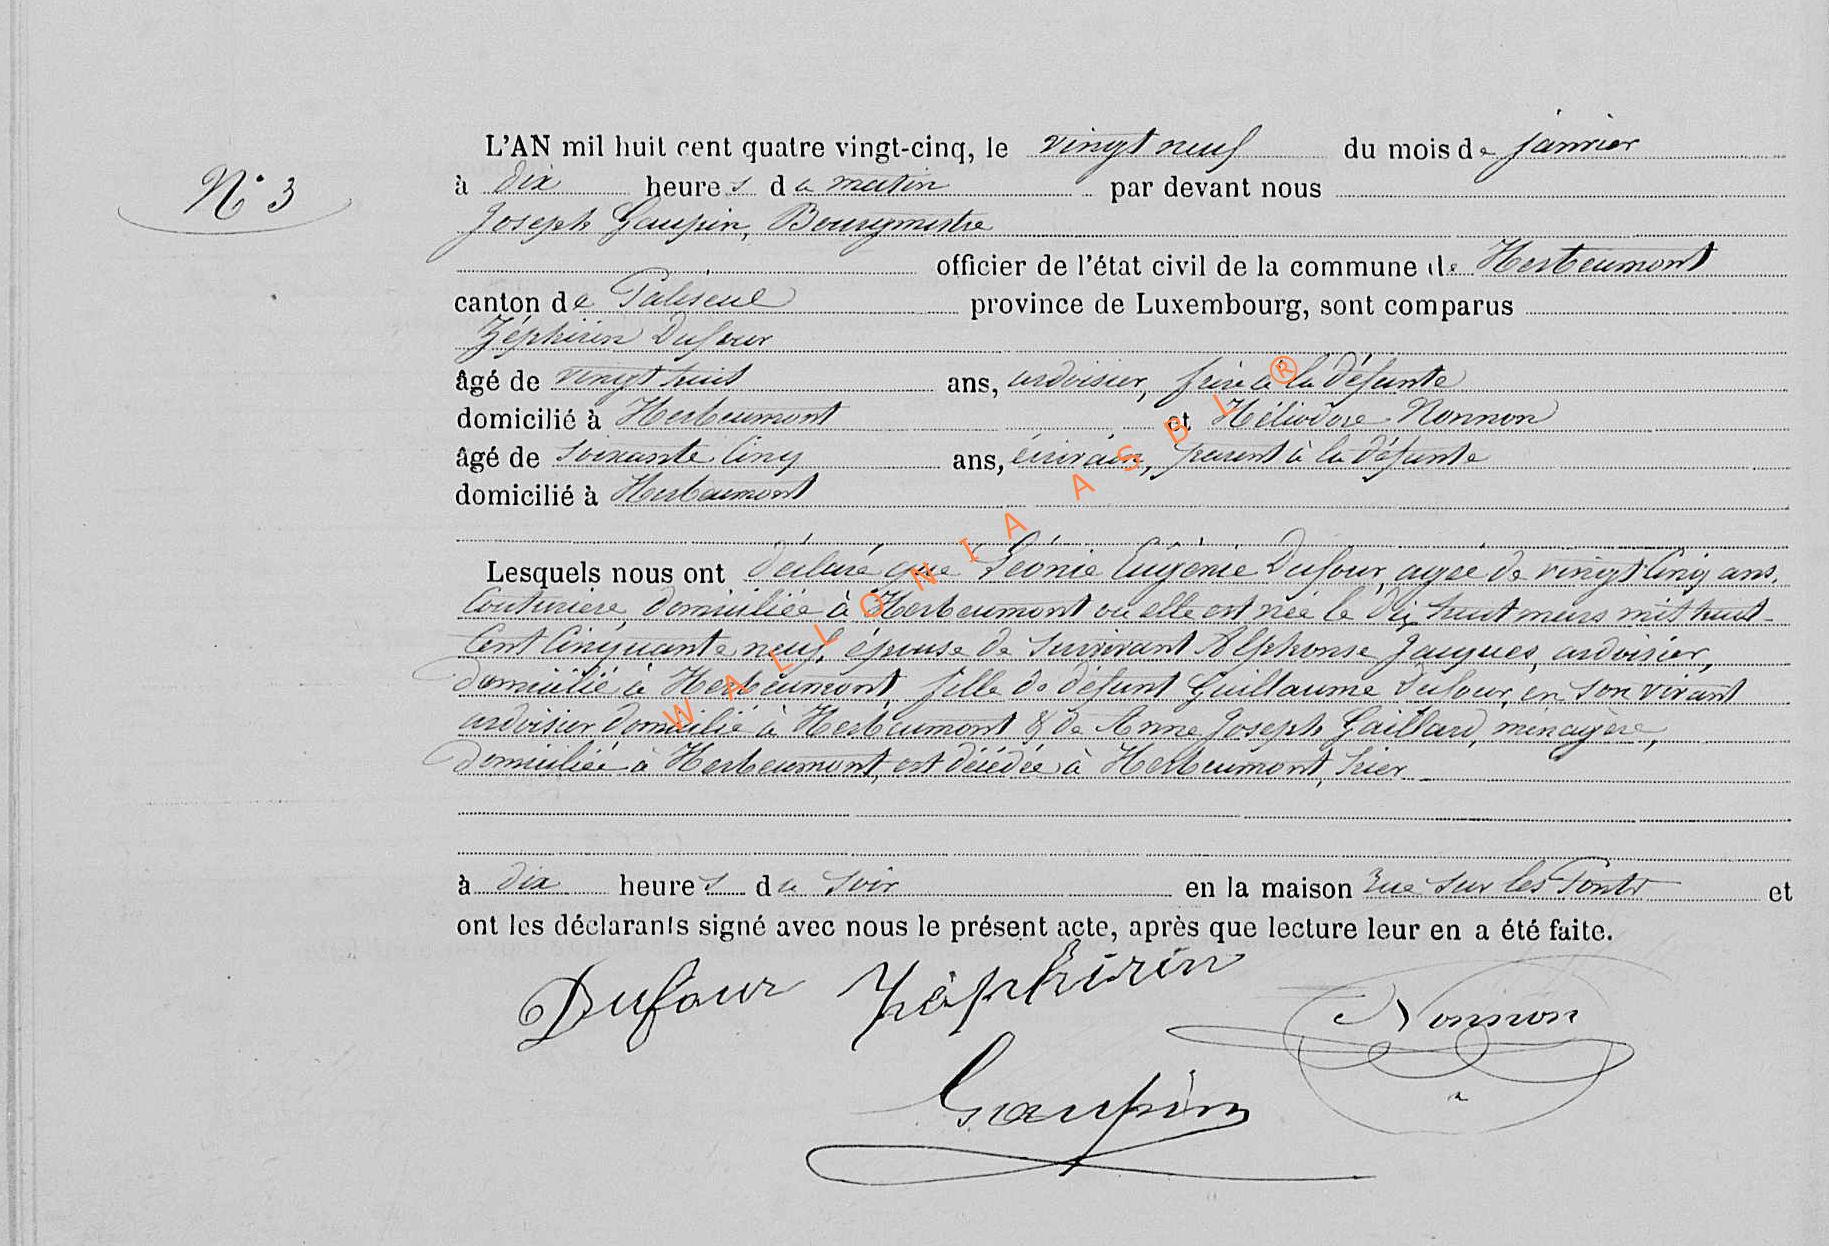 N° 3
L'AN mil huit cent quatre vingt-cinq, le vingt neuf du mois de janvier
à dix heures du matin par devant nous
Joseph Gaupin, Bourgmestre
officier de l'état civil de la commune de Herbeumont
canton de Paliseul province de Luxembourg, sont comparus
Zéphirin Dufour
âgé de vingt huit ans, ardoisier, frère à la défunte
domicilié à Herbeumont et Héliodore Nonnon
âgé de soixante cinq ans, écrivain, parent à la défunte
domicilié à Herbeumont
Lesquels nous ont déclaré que Léonie Eugénie Dufour, agée de vingt cinq ans,
couturière, domiciliée à Herbeumont où elle est née le dix huit mars mil huit
cent cinquante neuf, épouse de survivant Alphonse Jacques, ardoisier,
domicilié à Herbeumont, fille de défunt Guillaume Dufour, en son vivant
ardoisier domicilié à Herbeumont & de Anne Joseph Gaillard, ménagère,
domiciliée à Herbeumont, est décédée à Herbeumont, hier
à dix heures du soir en la maison rue sur les Ponts et
ont les déclarants signé avec nous le présent acte, après que lecture leur en a été faite.
Dufour Zéphirin
Nonnon
Gaupin
WALLONIA ASBL ®